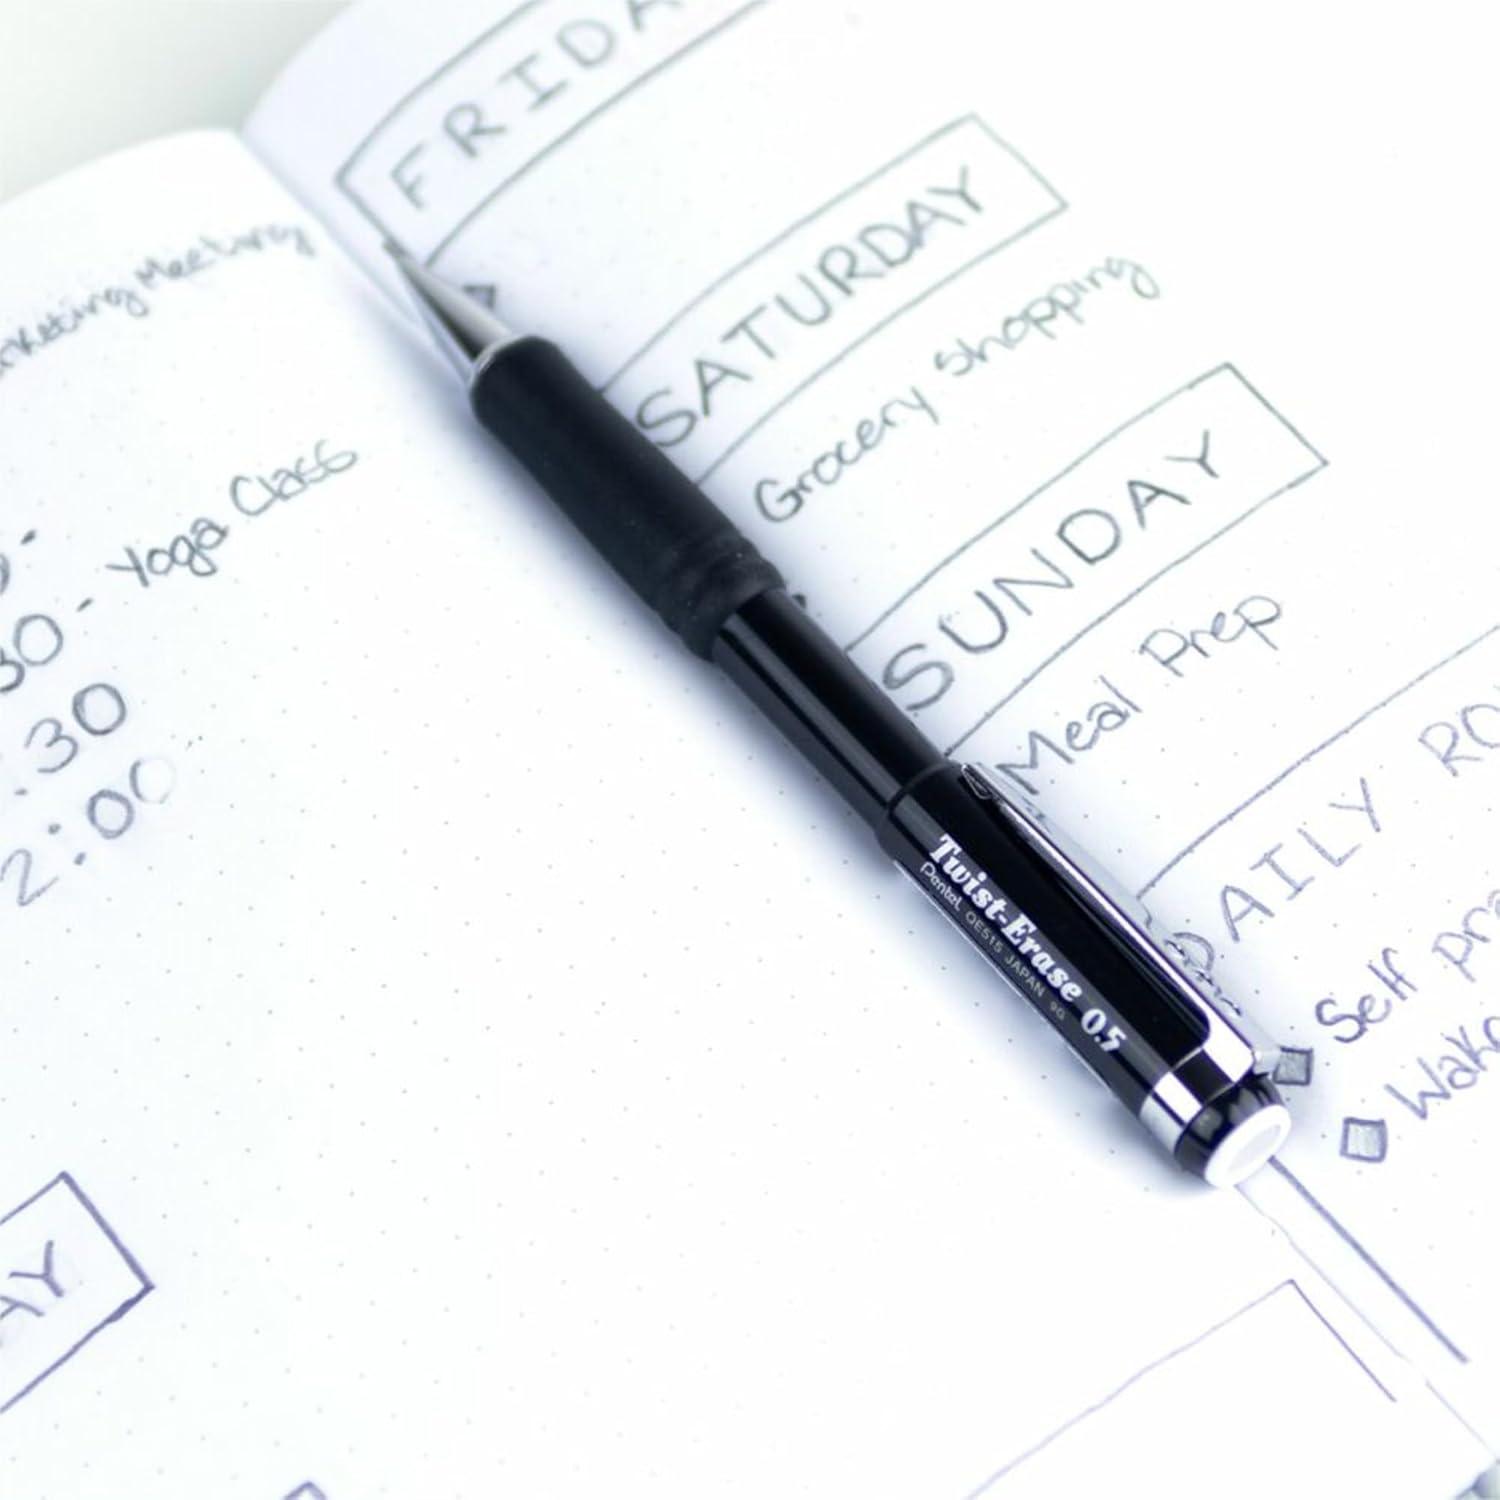 Meeting
- Yoga Class
30
2:00
FRIDA
SATURDAY
Grocery shopping
SUNDAY
Meal Prep
DAILY RO
Self pra
Wake
Twist-Erase 0.5
Pentel QE515 JAPAN 9G
AY